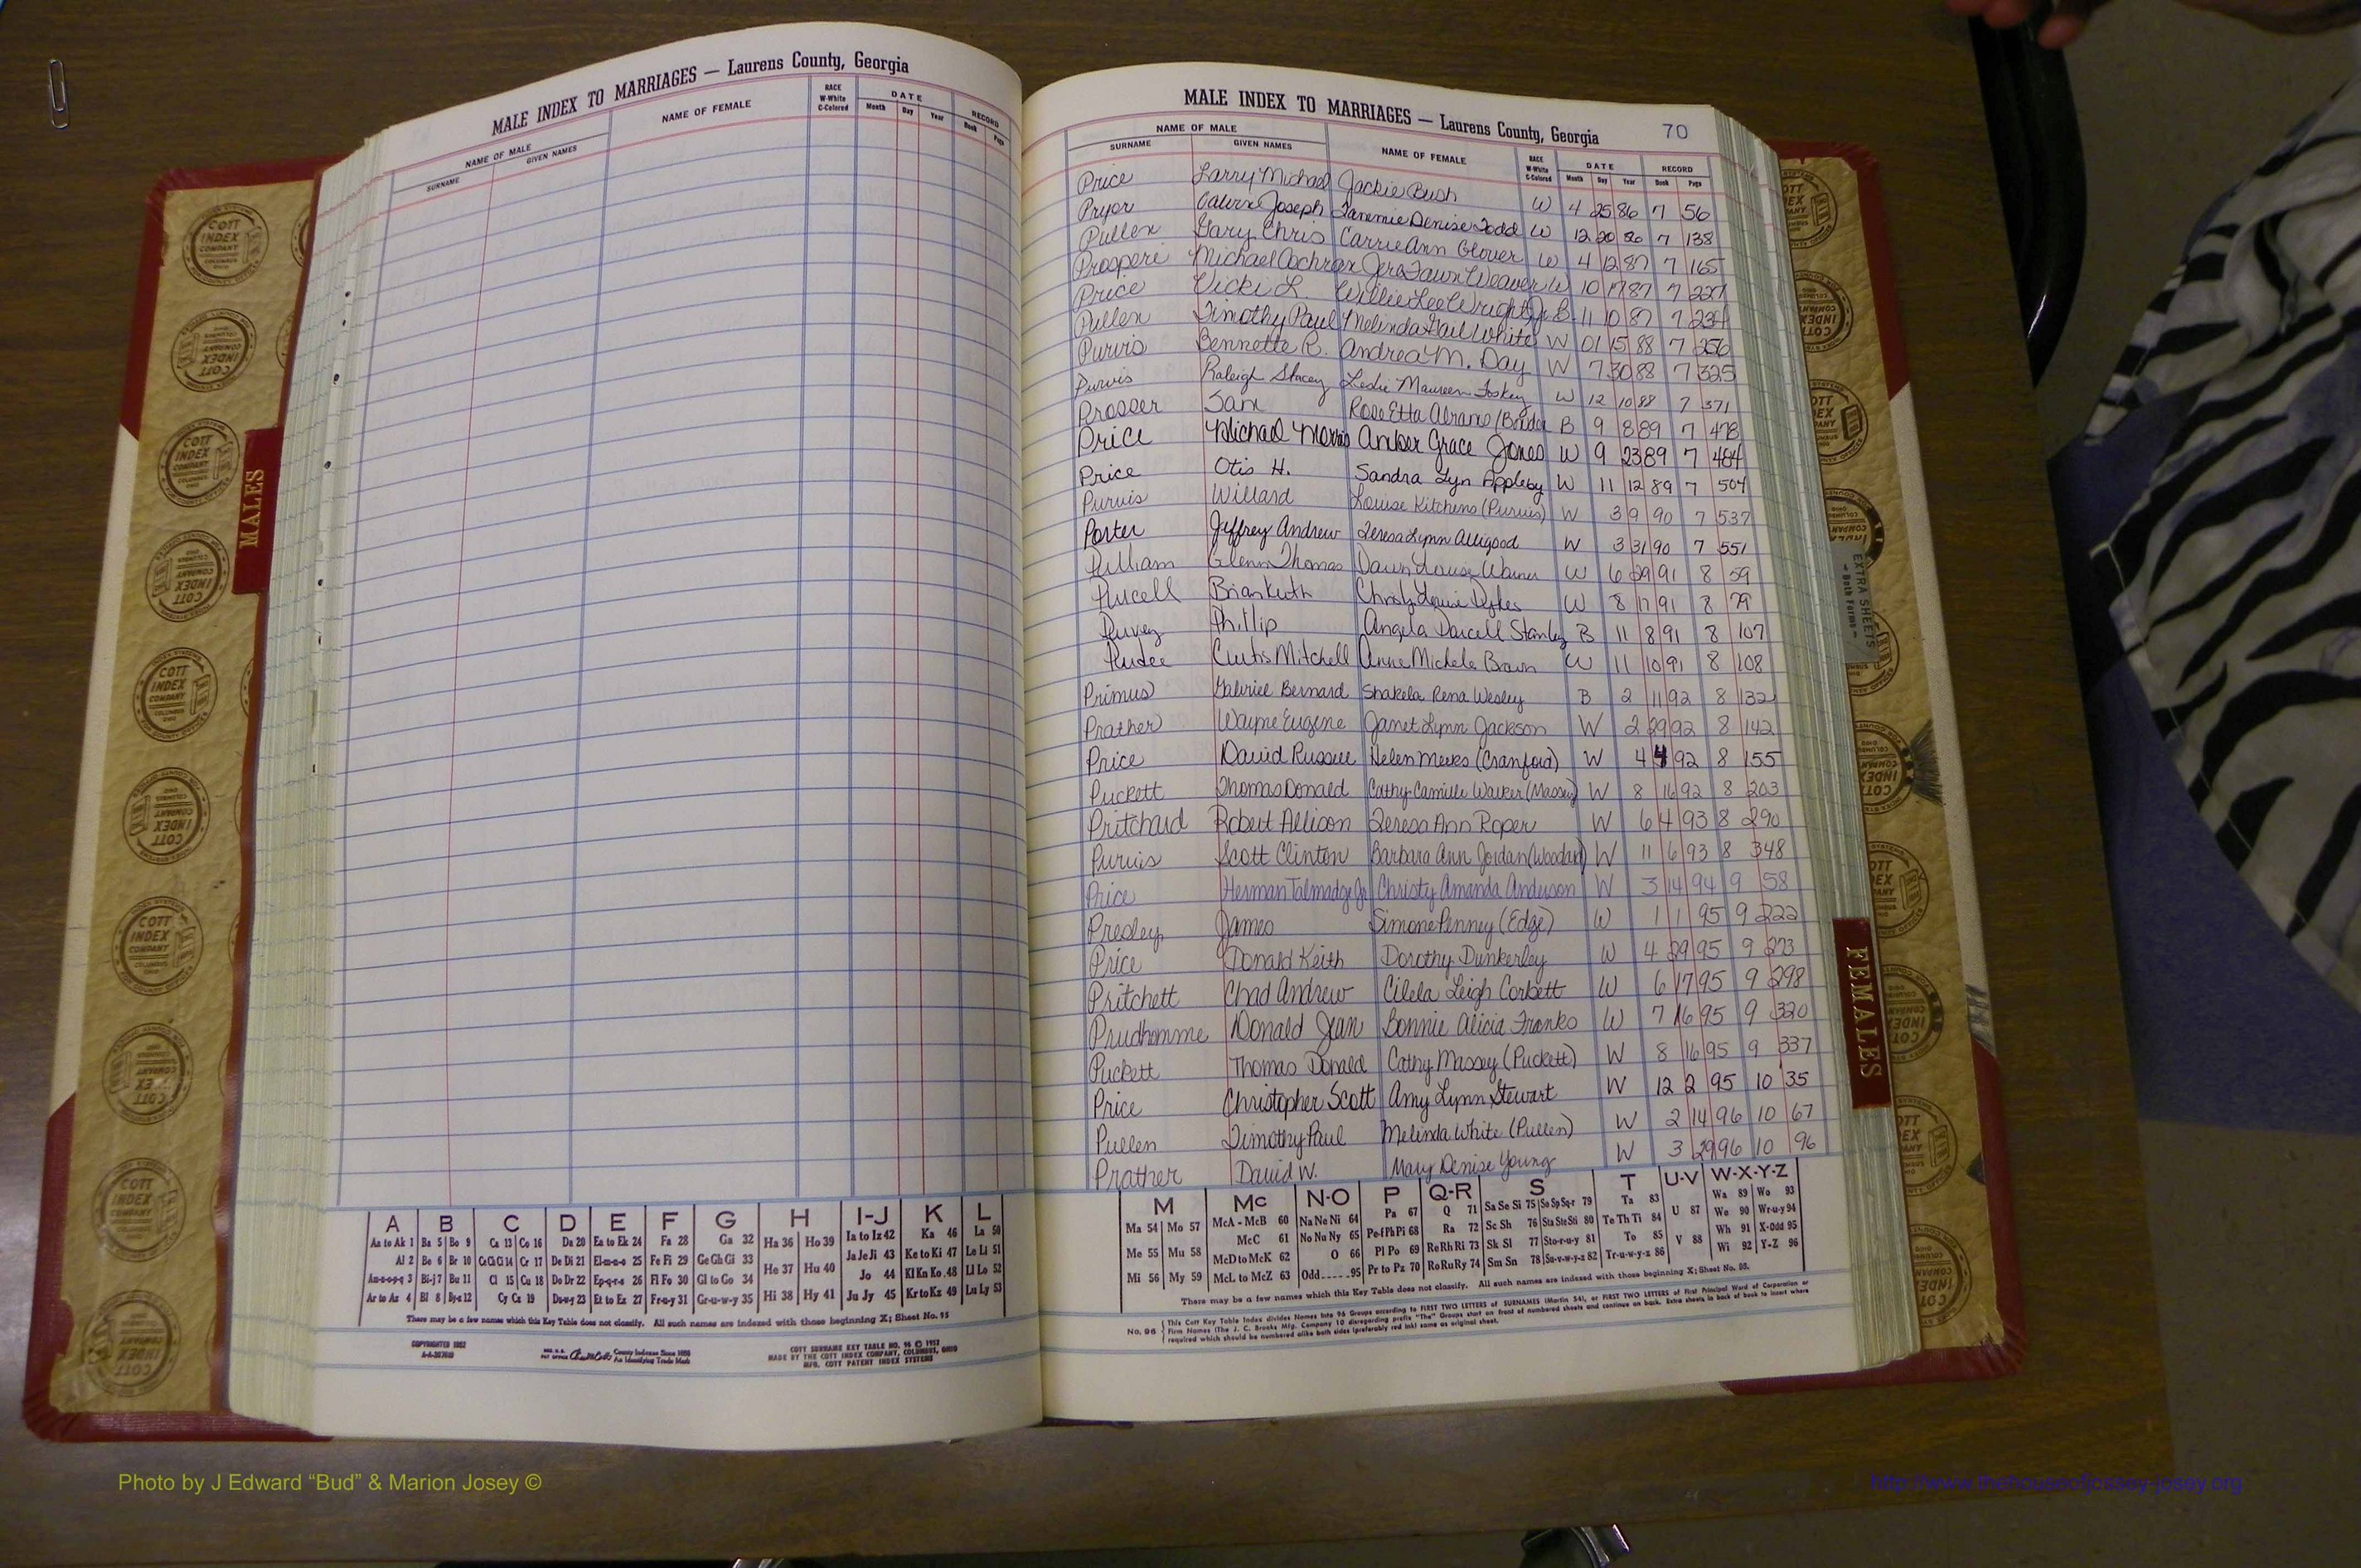 MALE INDEX TO MARRIAGES — Laurens County, Georgia
NAME OF MALE
SURNAME GIVEN NAMES
NAME OF FEMALE
RACE W-White C-Colored
DATE
Month Day Year
RECORD
Book Page
MALE INDEX TO MARRIAGES — Laurens County, Georgia 70
NAME OF MALE
SURNAME GIVEN NAMES
NAME OF FEMALE
RACE W-White C-Colored
DATE
Month Day Year
RECORD
Book Page
Price Larry Michael Jackie Bush W 4 25 86 7 56
Pryor Calvin Joseph Tammie Denise Todd W 12 20 86 7 138
Pullen Gary Chris Carrie Ann Glover W 4 12 87 7 165
Prosperi Michael Cochran Jera Fawn Weaver W 10 17 87 7 227
Price Vicki L. Willie Lee Wright Jr B 11 10 87 7 234
Pullen Timothy Paul Melinda Gail White W 01 15 88 7 256
Purvis Bennette R. Andrea M. Day W 7 30 88 7 325
Purvis Raleigh Stacey Leslie Maureen Foskey W 12 10 88 7 371
Prosser Sam Rose Etta B 9 8 89 7 478
Price Michael Morris Amber Grace Jones W 9 23 89 7 484
Price Otis H. Sandra Lyn Appleby W 11 12 89 7 504
Purvis Willard Louise Kitchens (Purvis) W 3 9 90 7 537
Porter Jeffrey Andrew Teresa Lynn Alligood W 3 31 90 7 551
Pulliam Glenn Thomas Dawn Louise Warner W 6 29 91 8 59
Purcell Brian Keith Christy Louise Dykes W 8 17 91 8 79
Phillip Angela Darcell Stanley B 11 8 91 8 107
Curtis Mitchell Anne Michele Brown W 11 10 91 8 108
Primus Gabriel Bernard Shakela Rena Wesley B 2 11 92 8 132
Prather Wayne Eugene Janet Lynn Jackson W 2 29 92 8 142
Price David Russell Helen Meeks (Cranford) W 4 4 92 8 155
Puckett Thomas Donald Cathy Camille Walker (Massey) W 8 16 92 8 203
Pritchard Robert Allison Teresa Ann Roper W 6 4 93 8 290
Purvis Scott Clinton Barbara Ann Jordan (Woodard) W 11 6 93 8 348
Price Herman Talmadge Jr Christy Amanda Anderson W 3 14 94 9 58
Presley James Simone Penney (Edge) W 1 1 95 9 222
Price Donald Keith Dorothy Dunkerley W 4 29 95 9 273
Pritchett Chad Andrew Cilela Leigh Corbett W 6 17 95 9 298
Prudhomme Donald Jean Bonnie Alicia Franks W 7 16 95 9 320
Puckett Thomas Donald Cathy Massey (Puckett) W 8 16 95 9 337
Price Christopher Scott Amy Lynn Stewart W 12 2 95 10 35
Pullen Timothy Paul Melinda White (Pullen) W 2 14 96 10 67
Prather David W. Mary Denise Young W 3 29 96 10 96
A B C D E F G H I-J K L
Aa to Ak 1 Ba 5 Bo 9 Ca 13 Co 16 Da 20 Ea to Ek 24 Fa 28 Ga 32 Ha 36 Ho 39 Ia to Iz 42 Ka 46 La 50
Al 2 Be 6 Br 10 Ce Ch Ci 14 Cr 17 De Di 21 El-m-n-o 25 Fe Fi 29 Ge Gh Gi 33 He 37 Hu 40 Ja Je Ji 43 Ke to Ki 47 Le Li 51
Am-n-o-p-q 3 Bi-j 7 Bu 11 Cl 15 Cu 18 Do Dr 22 Ep-q-r-s 26 Fl Fo 30 Gl to Go 34 Hi 38 Hy 41 Jo 44 Kl Kn Ko 48 Ll Lo 52
Ar to Az 4 Bl 8 By-c 12 Cy Cz 19 Du-w-y 23 Et to Ez 27 Fr-u-y 31 Gr-u-w-y 35 Ju Jy 45 Kr to Kz 49 Lu Ly 53
There may be a few names which this Key Table does not classify. All such names are indexed with those beginning X; Sheet No. 95
COTT SURNAME KEY TABLE NO. 96 © 1952
MADE BY THE COTT INDEX COMPANY, COLUMBUS, OHIO
MFG. COTT PATENT INDEX SYSTEMS
M Mc N-O P Q-R S T U-V W-X-Y-Z
Ma 54 Mo 57 McA - McB 60 Na Ne Ni 64 Pa 67 Q 71 Sa Se Si 75 So Sp Sq-r 79 Ta 83 U 87 Wa 89 Wo 93
Me 55 Mu 58 McC 61 No Nu Ny 65 Pe-f Ph Pi 68 Ra 72 Sc Sh 76 Sta Ste Sti 80 Te Th Ti 84 V 88 We 90 Wr-u-y 94
Mi 56 My 59 McD to McK 62 O 66 Pl Po 69 Re Rh Ri 73 Sk Sl 77 Sto-r-u-y 81 To 85 Wh 91 X-Odd 95
McL to McZ 63 Odd 95 Pr to Pz 70 Ro Ru Ry 74 Sm Sn 78 Su-v-w-y-z 82 Tr-u-w-y-z 86 Wi 92 Y-Z 96
There may be a few names which this Key Table does not classify. All such names are indexed with those beginning X; Sheet No. 95.
No. 96 This Cott Key Table Index divides Names into 96 Groups according to FIRST TWO LETTERS of SURNAMES (Martin 54), or FIRST TWO LETTERS of First Principal Word of Corporation or
Firm Names (The J. C. Brooks Mfg. Company 10 disregarding prefix "The" Groups start on front of numbered sheets and continue on back. Extra sheets in back of book to insert where
required which should be numbered alike both sides (preferably red ink) same as original sheet.
MALES
FEMALES
EXTRA SHEETS
COTT INDEX COMPANY
COLUMBUS OHIO
Photo by J Edward “Bud” & Marion Josey ©
http://www.thehouseofjossey-josey.org